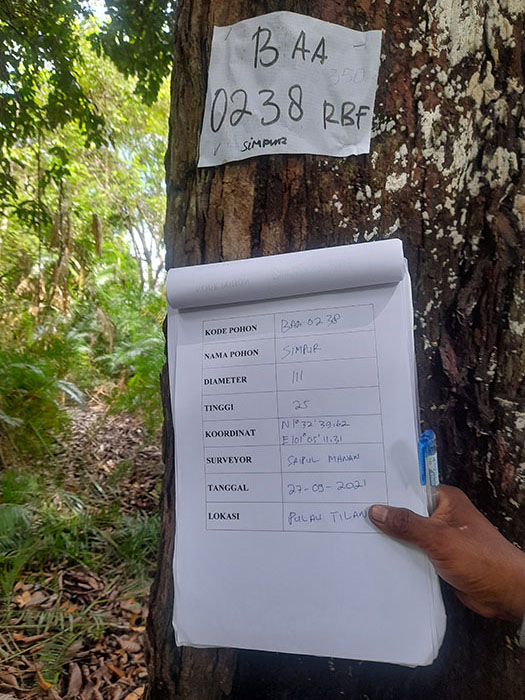 BAA
350
0238 RBF
SIMPUR
KODE POHON BAA 0238
NAMA POHON SIMPUR
DIAMETER 111
TINGGI 25
KOORDINAT N 1° 32' 39.62
E 101° 05' 11.31
SURVEYOR SAIPUL MANAN
TANGGAL 27-09-2021
LOKASI PULAU TILAN